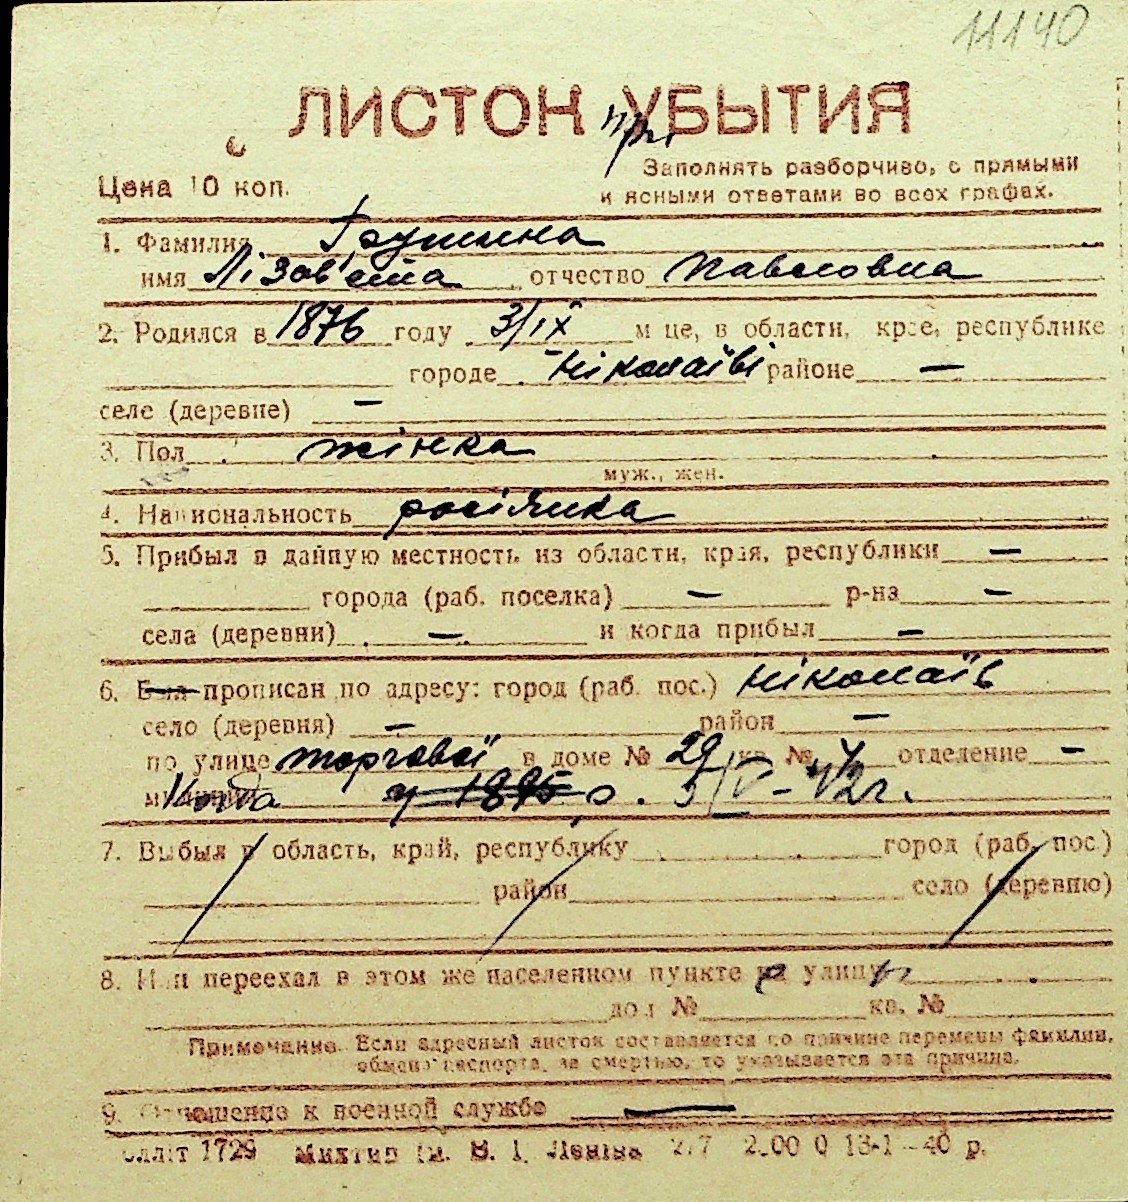 11140
ЛИСТОК УБЫТИЯ
при
Цена 10 коп.
Заполнять разборчиво, с прямыми
и ясными ответами во всех графах.
1. Фамилия Грушина
имя Лізов'єта отчество Павловна
2. Родился в 1876 году 3/ІХ м-це, в области, крае, республике
городе Ніколаїві районе —
селе (деревне) —
3. Пол жінка
муж., жен.
4. Национальность росіянка
5. Прибыл в данную местность из области, края, республики —
города (раб. поселка) — р-на —
села (деревни) — и когда прибыл —
6. Был прописан по адресу: город (раб. пос.) Ніколаїв
село (деревня) — район —
по улице торговой в доме № 29 кв. № 4 отделение —
у 1895 р. 5/IV-42г.
7. Выбыл в область, край, республику город (раб. пос.)
район село (деревню)
8. Или переехал в этом же населенном пункте на улицу
дом № кв. №
Примечание. Если адресный листок составляется по причине перемены фамилии,
обмена паспорта, за смертью, то указывается эта причина.
9. Отношение к военной службе —
1729 ім. В. І. Леніна 13-1-40 р.